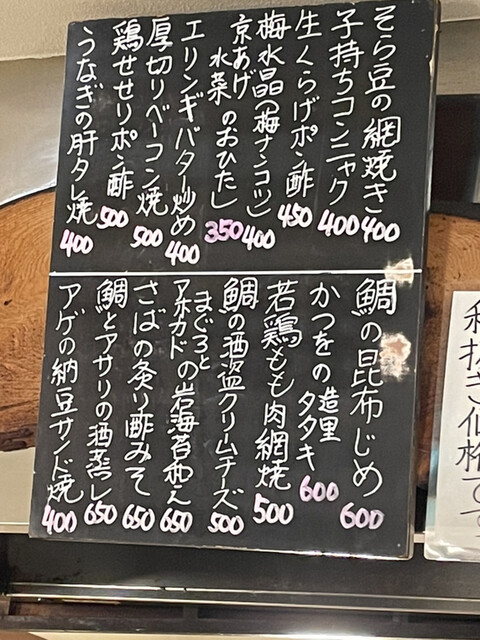 そら豆の網焼き 400
子持ちコンニャク 400
生くらげポン酢 450
梅水晶(梅ナンコツ) 400
京あげ
水菜のおひたし 350
エリンギバター炒め 400
厚切りベーコン焼 500
鶏せせりポン酢 500
うなぎの肝タレ焼 400
鯛の昆布じめ 600
かつをの造里
タタキ 600
若鶏もも肉網焼 500
鯛の酒盗クリームチーズ 500
まぐろと
アボカドの岩海苔和え 650
さばの炙り酢みそ 650
鯛とアサリの酒蒸し 650
アゲの納豆サンド焼 400
税抜き価格です